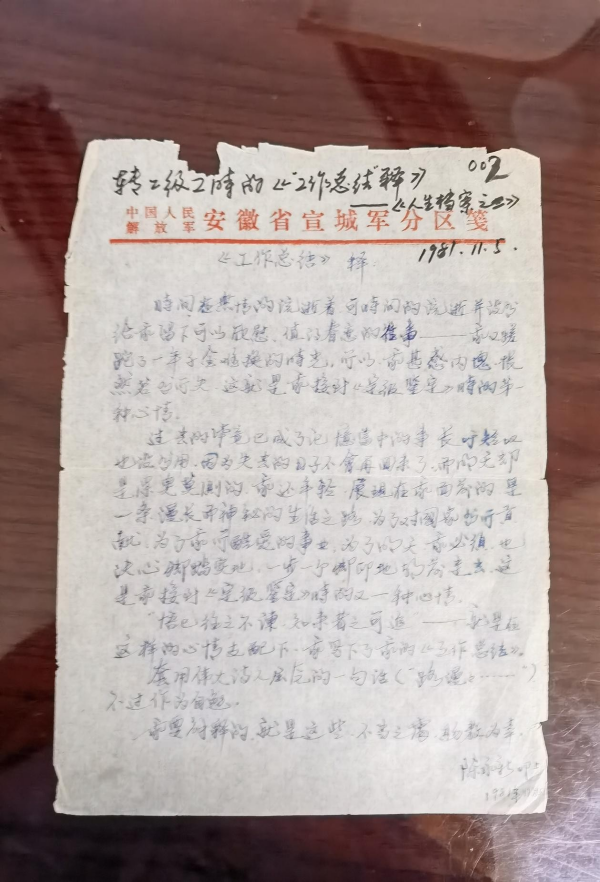 002
转二级工时的《"工作总结"释》
——《人生档案之二》
中国人民
解放军 安徽省宣城军分区笺
1981.11.5.
《工作总结》释
时间在无情的流逝着 可时间的流逝并没有
给我留下可以欣慰、值得
跑了一年千金难换的时光,所以,我甚感内愧、怅
然若有所失,这就是我接到《定级鉴定》时的第一
种心情。
过去的毕竟已成了记忆当中的事,长吁短叹
也没有用,因为失去的日子不会再回来了,而明天却
是深更莫测的,我还年轻,展现在我面前的是
一条漫长而神秘的生活之路,为了对国家有所贡
献,为了我所酷爱的事业,为了明天,我必须,也
决心脚踏实地,一步一个脚印地朝前走去,这
是我接到《定级鉴定》时的又一种心情。
"悟已往之不谏,知来者之可追"——就是在
这样的心情支配下,我写下了我的《工作总结》。
套用伟大诗人屈原的一句话("路漫漫……")
不过作为自勉。
我要附释的,就是这些,不当之处,赐教为幸。